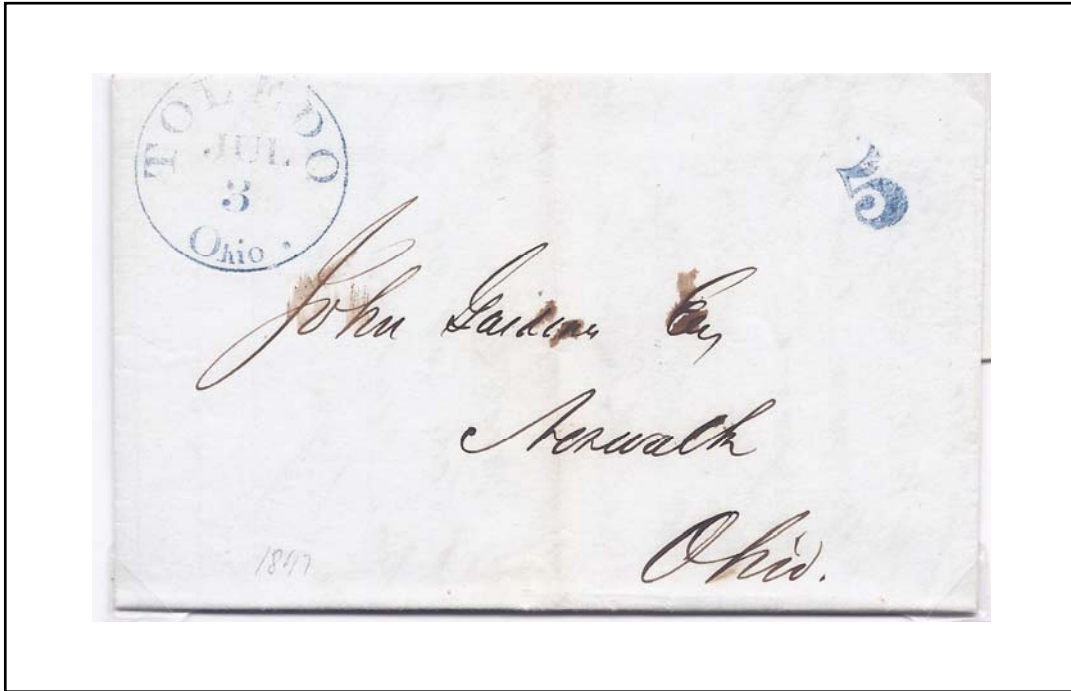 TOLEDO
JUL
3
Ohio
5
John Gardiner Esq
Norwalk
Ohio.
1847